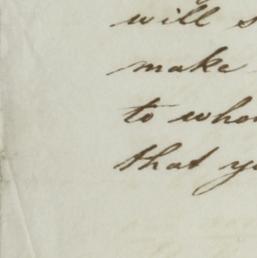 will s
make
to who
that y